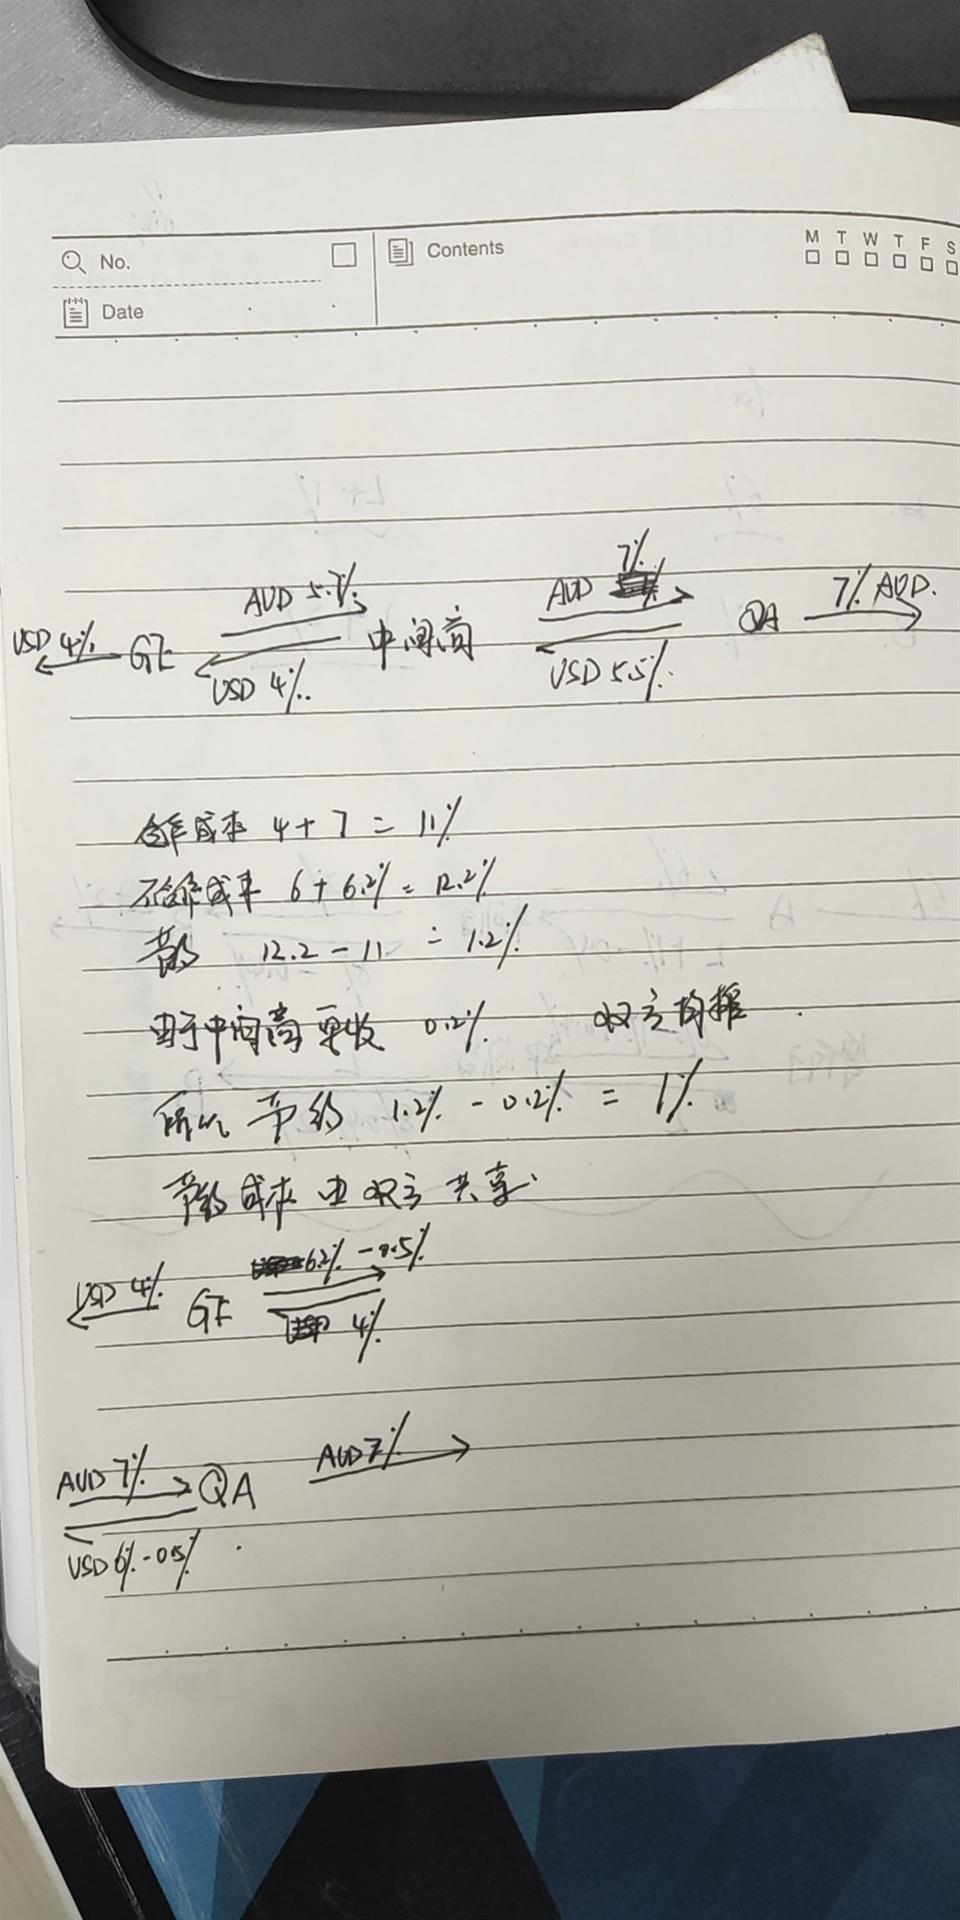 No.
Contents
M T W T F S
Date
USD 4% GE AUD 5.7% USD 4% 中间商 AUD 7% USD 5.5% QA 7% AUD.
合作成本 4+7=11%
不合作成本 6+6.2%=12.2%
节约 12.2-11=1.2%
由于中间商要收 0.2% 双方均摊.
所以 节约 1.2%-0.2%=1%
节约成本由双方共享.
USD 4% GE 6.2%-0.5% 4%
AUD 7% QA AUD 7%
USD 6%-0.5%